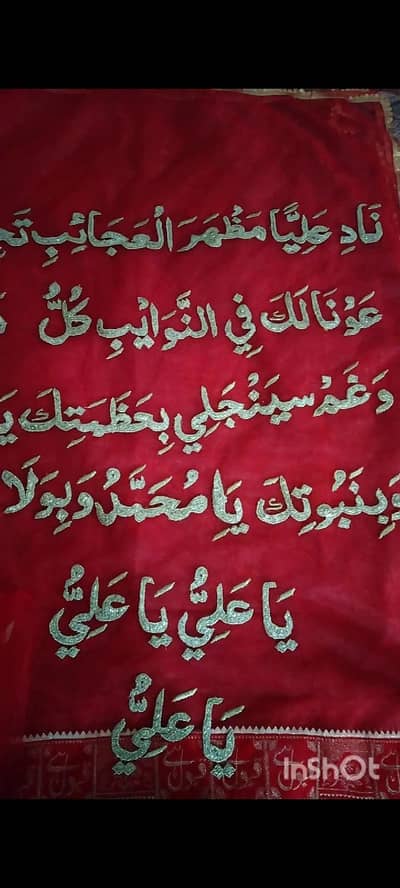 نَادِ عَلِيًّا مَظْهَرَ الْعَجَائِبِ تَجِ
عَوْنَا لَكَ فِي النَّوَايْبِ كُلُّ
وَغَمْ سَيَنْجَلِي بِعَظَمَتِكَ يَ
وَبِنَبُوتِكَ يَا مُحَمَّدُ وَبِوَلَا
يَا عَلِيُّ يَا عَلِيُّ
يَا عَلِيُّ
InShOt